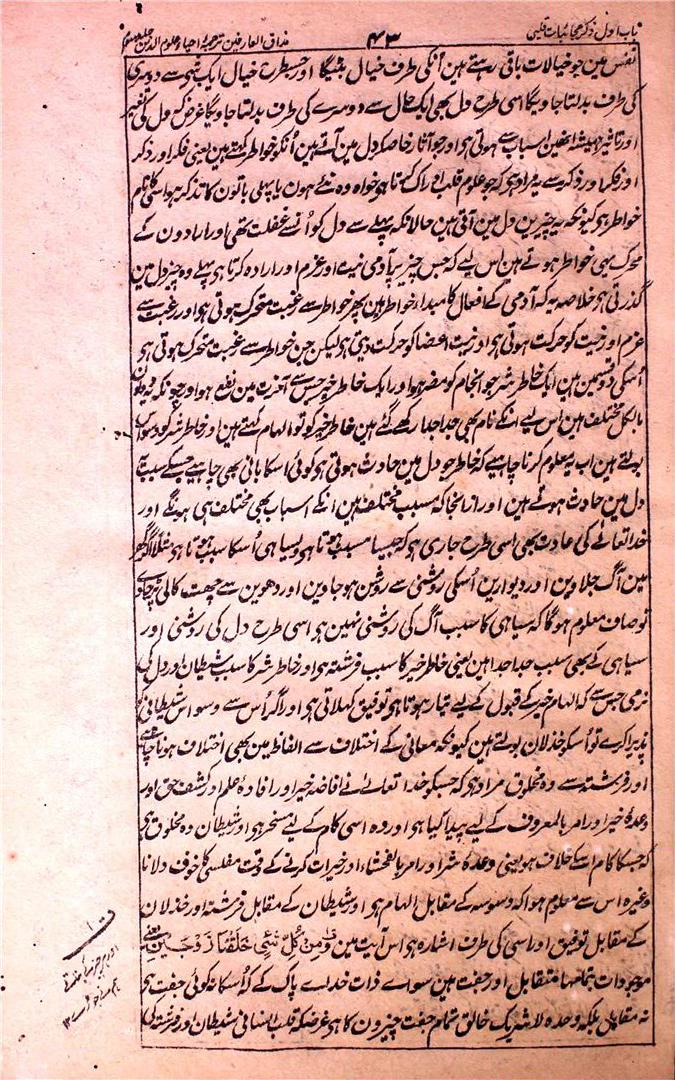 باب اول ذکر عجائبات قلبی
۴۳
مذاق العارفین ترجمۂ احیاء علوم الدین جلد سوم
نفس مین جو خیالات باقی رہتے ہین اُنکی طرف خیال بٹیگا اور جسطرح خیال ایک شے سے دوسری
کی طرف بدلتا جاویگا اسی طرح دل بھی ایک حال سے دوسرے کی طرف بدلتا جاویگا غرض کہ دل کی تغییر
اور تاثیر ہمیشہ انھین اسباب سے ہوتی ہی اور جو آثار خاصکر دل مین آتے ہین اُنکو خواطر کہتے ہین یعنی فکر اور ذکر
اور فکر اور ذکر سے یہ مراد ہی کہ جو علوم قلب ادراک کرتا ہی خواہ وہ نئے ہون یا پہلی باتون کا تذکرہ ہو اسی کا نام
خواطر ہی کیونکہ یہ چیزین دل مین آتی ہین حالانکہ پہلے سے دل کو اُنسے غفلت تھی اور ارادون کے
محرک بھی خواطر ہوتے ہین اس لیے کہ جس چیز پر آدمی نیت اور عزم اور ارادہ کرتا ہی پہلے وہ چیز دل مین
گذرتی ہی خلاصہ یہ کہ آدمی کے افعال کا مبداء خواطر ہین پھر خواطر سے رغبت متحرک ہوتی ہی اور رغبت سے
عزم اور نیت کو حرکت ہوتی ہی اور نیت اعضا کو حرکت دیتی ہی لیکن جن خواطر سے رغبت متحرک ہوتی ہی
اُسکی دو قسمین ہین ایک خاطر شر جو انجام کو مضر ہو اور ایک خاطر خیر جس سے آخرت مین نفع ہو اور چونکہ یہ دونون
بالکل مختلف ہین اس لیے انکے نام بھی جدا جدا رکھے گئے ہین خاطر خیر کو تو الہام کہتے ہین اور خاطر شر کو وسواس
بولتے ہین اب یہ معلوم کرنا چاہیے کہ خاطر جو دل مین حادث ہوتی ہی کوئی اُسکا بانی بھی چاہیے جسکے سبب سے
دل مین حادث ہوتے ہین اور ازانجا کہ مسبب مختلف ہین انکے اسباب بھی مختلف ہی ہونگے اور
خدا تعالے کی عادت بھی اسی طرح جاری ہی کہ جیسا مسبب ہوتا ہی ویسا ہی اُسکا سبب ہوتا ہی مثلا اگر گھر
مین آگ جلاوین اور دیوارین اُسکی روشنی سے روشن ہو جاوین اور دھوین سے چھت کالی پڑ جاوے
تو صاف معلوم ہوگا کہ سیاہی کا سبب آگ کی روشنی نہین ہی اسی طرح دل کی روشنی اور
سیاہی کے بھی سبب جدا جدا ہین یعنی خاطر خیر کا سبب فرشتہ ہی اور خاطر شر کا سبب شیطان اور دل کی
نرمی جس سے کہ الہام خیر کے قبول کے لیے تیار ہوتا ہی توفیق کہلاتی ہی اور اگر اُس سے وسواس شیطانی کو
پذیرا کرے تو اُسکو خذلان بولتے ہین کیونکہ معانی کے اختلاف سے الفاظ مین بھی اختلاف ہونا چاہیے
اور فرشتہ سے وہ مخلوق مراد ہی کہ جسکو خدا تعالے نے افاضۂ خیر اور افادۂ علم اور کشف حق اور
وعدۂ خیر اور امر بالمعروف کے لیے پیدا کیا ہی اور وہ اسی کام کے لیے مسخر ہی اور شیطان وہ مخلوق ہی
کہ جسکا کام اسکے خلاف ہی یعنی وعدۂ شر اور امر بالفحشاء اور خیرات کرنے کے وقت مفلسی کا خوف دلانا
وغیرہ اس سے معلوم ہوا کہ وسوسہ کے مقابل الہام ہی اور شیطان کے مقابل فرشتہ اور خذلان
کے مقابل توفیق اور اسی کی طرف اشارہ ہی اس آیت مین وَمِنْ کُلِّ شَیْئٍ خَلَقْنَا زَوْجَیْنِ یعنے
موجودات تمامہا متقابل اور جفت ہین سواے ذات خداے پاک کے کہ اُسکا نہ کوئی جفت ہی
نہ مقابل بلکہ وحدہ لا شریک خالق تمام جفت چیزون کا ہی غرضکہ قلب انسانی شیطان اور فرشتہ کی
۱
اور ہر چیز کے بنائے
ہم نے جوڑے ۱۲